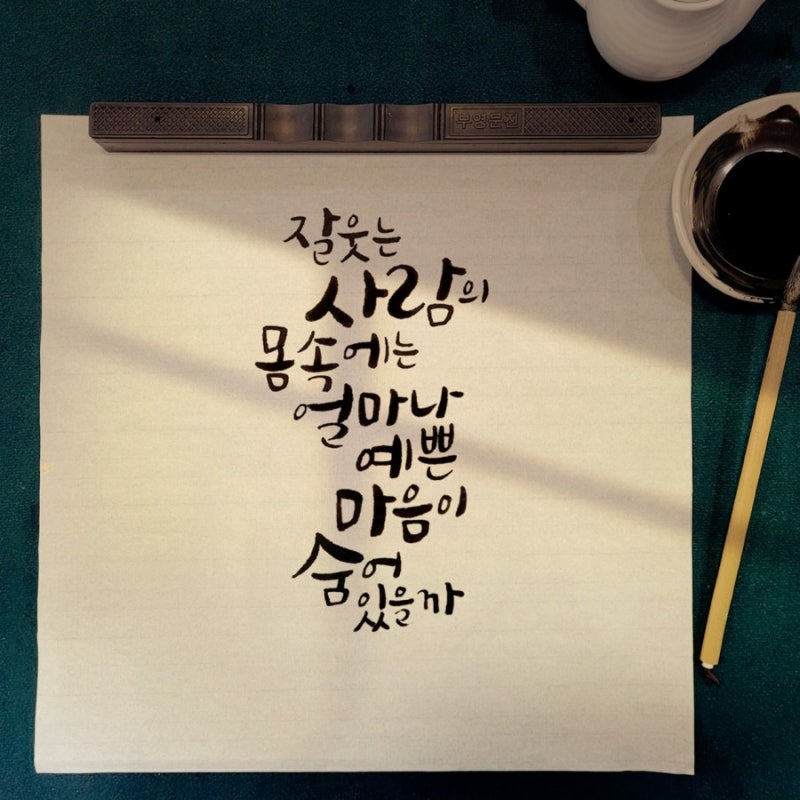 부영문전
잘웃는
사람의
몸속에는
얼마나
예쁜
마음이
숨어
있을까